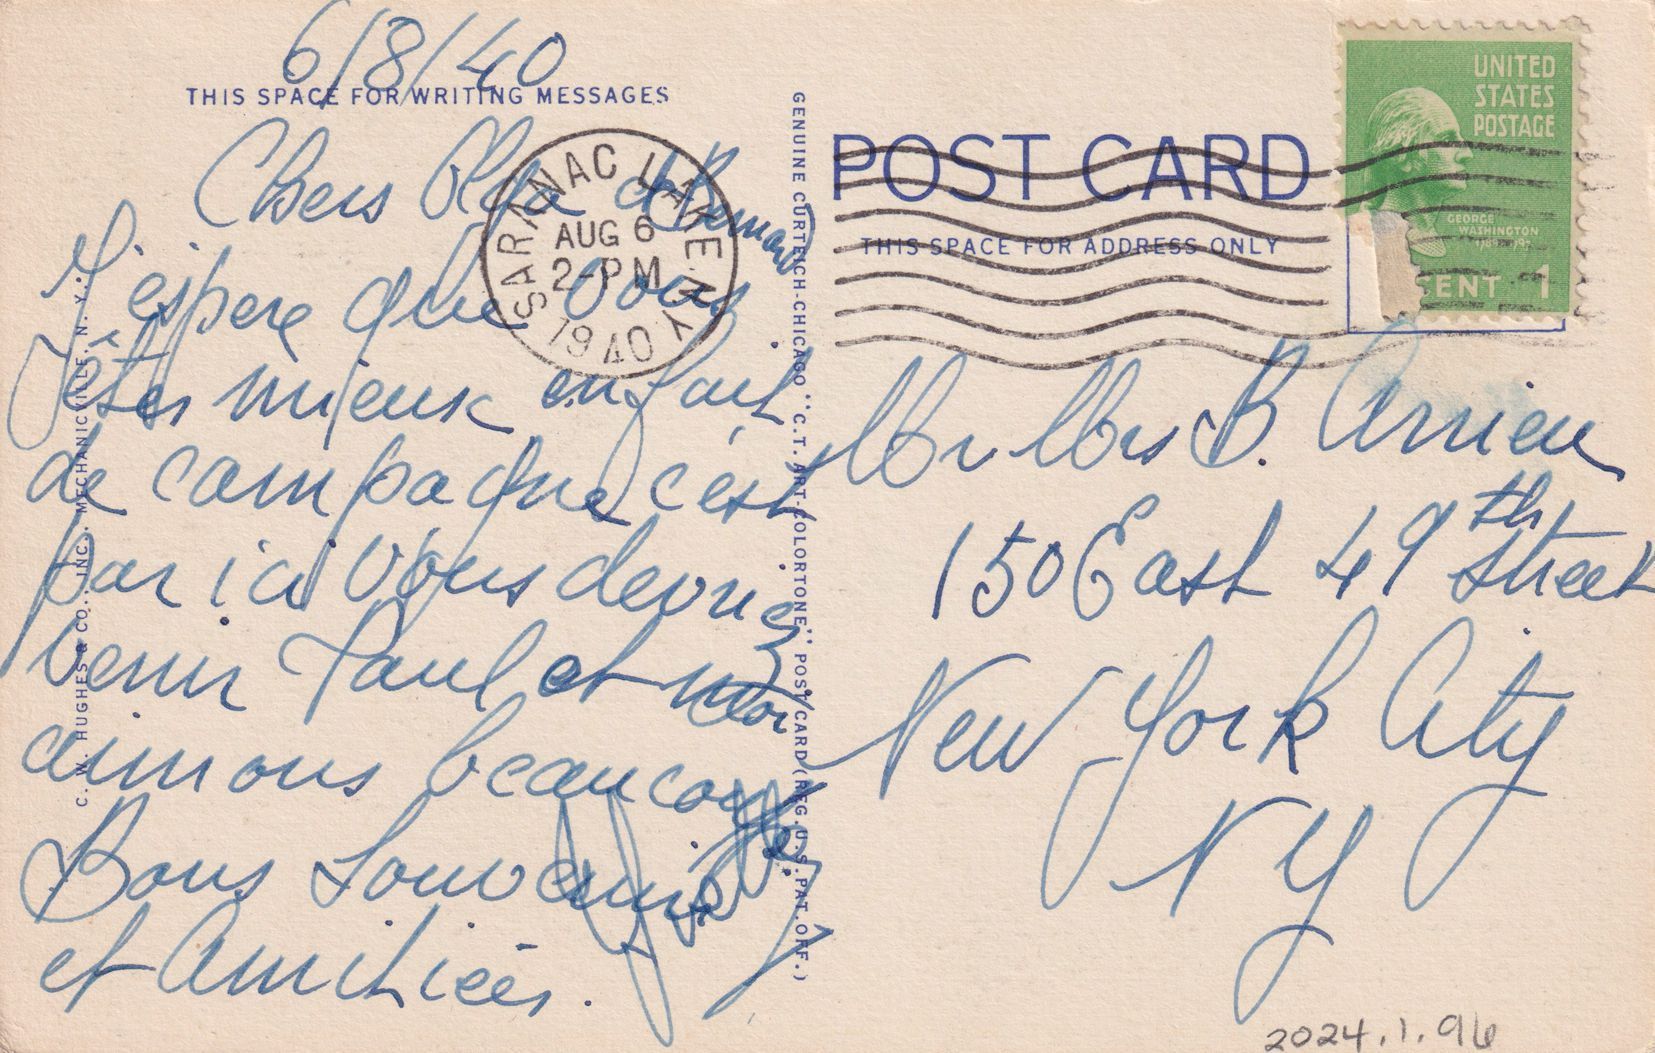 6/8/40
THIS SPACE FOR WRITING MESSAGES
Chers Olga et Bernard
J'espere que vous
êtes mieux en fait
de campagne c'est
par ici vous devriez
venir Paul et moi
aimons beaucoup
Bons Souvenirs
et Amitiées.
SARANAC LAKE N.Y.
AUG 6
2-PM
1940
C. W. HUGHES & CO., INC., MECHANICVILLE, N. Y.
GENUINE CURTEICH-CHICAGO "C.T. ART-COLORTONE" POST CARD (REG. U.S. PAT. OFF.)
POST CARD
THIS SPACE FOR ADDRESS ONLY
UNITED
STATES
POSTAGE
GEORGE
WASHINGTON
CENT 1
Mr Mrs B. Arrieu
150 East 49th Street
New York City
NY
2024.1.96